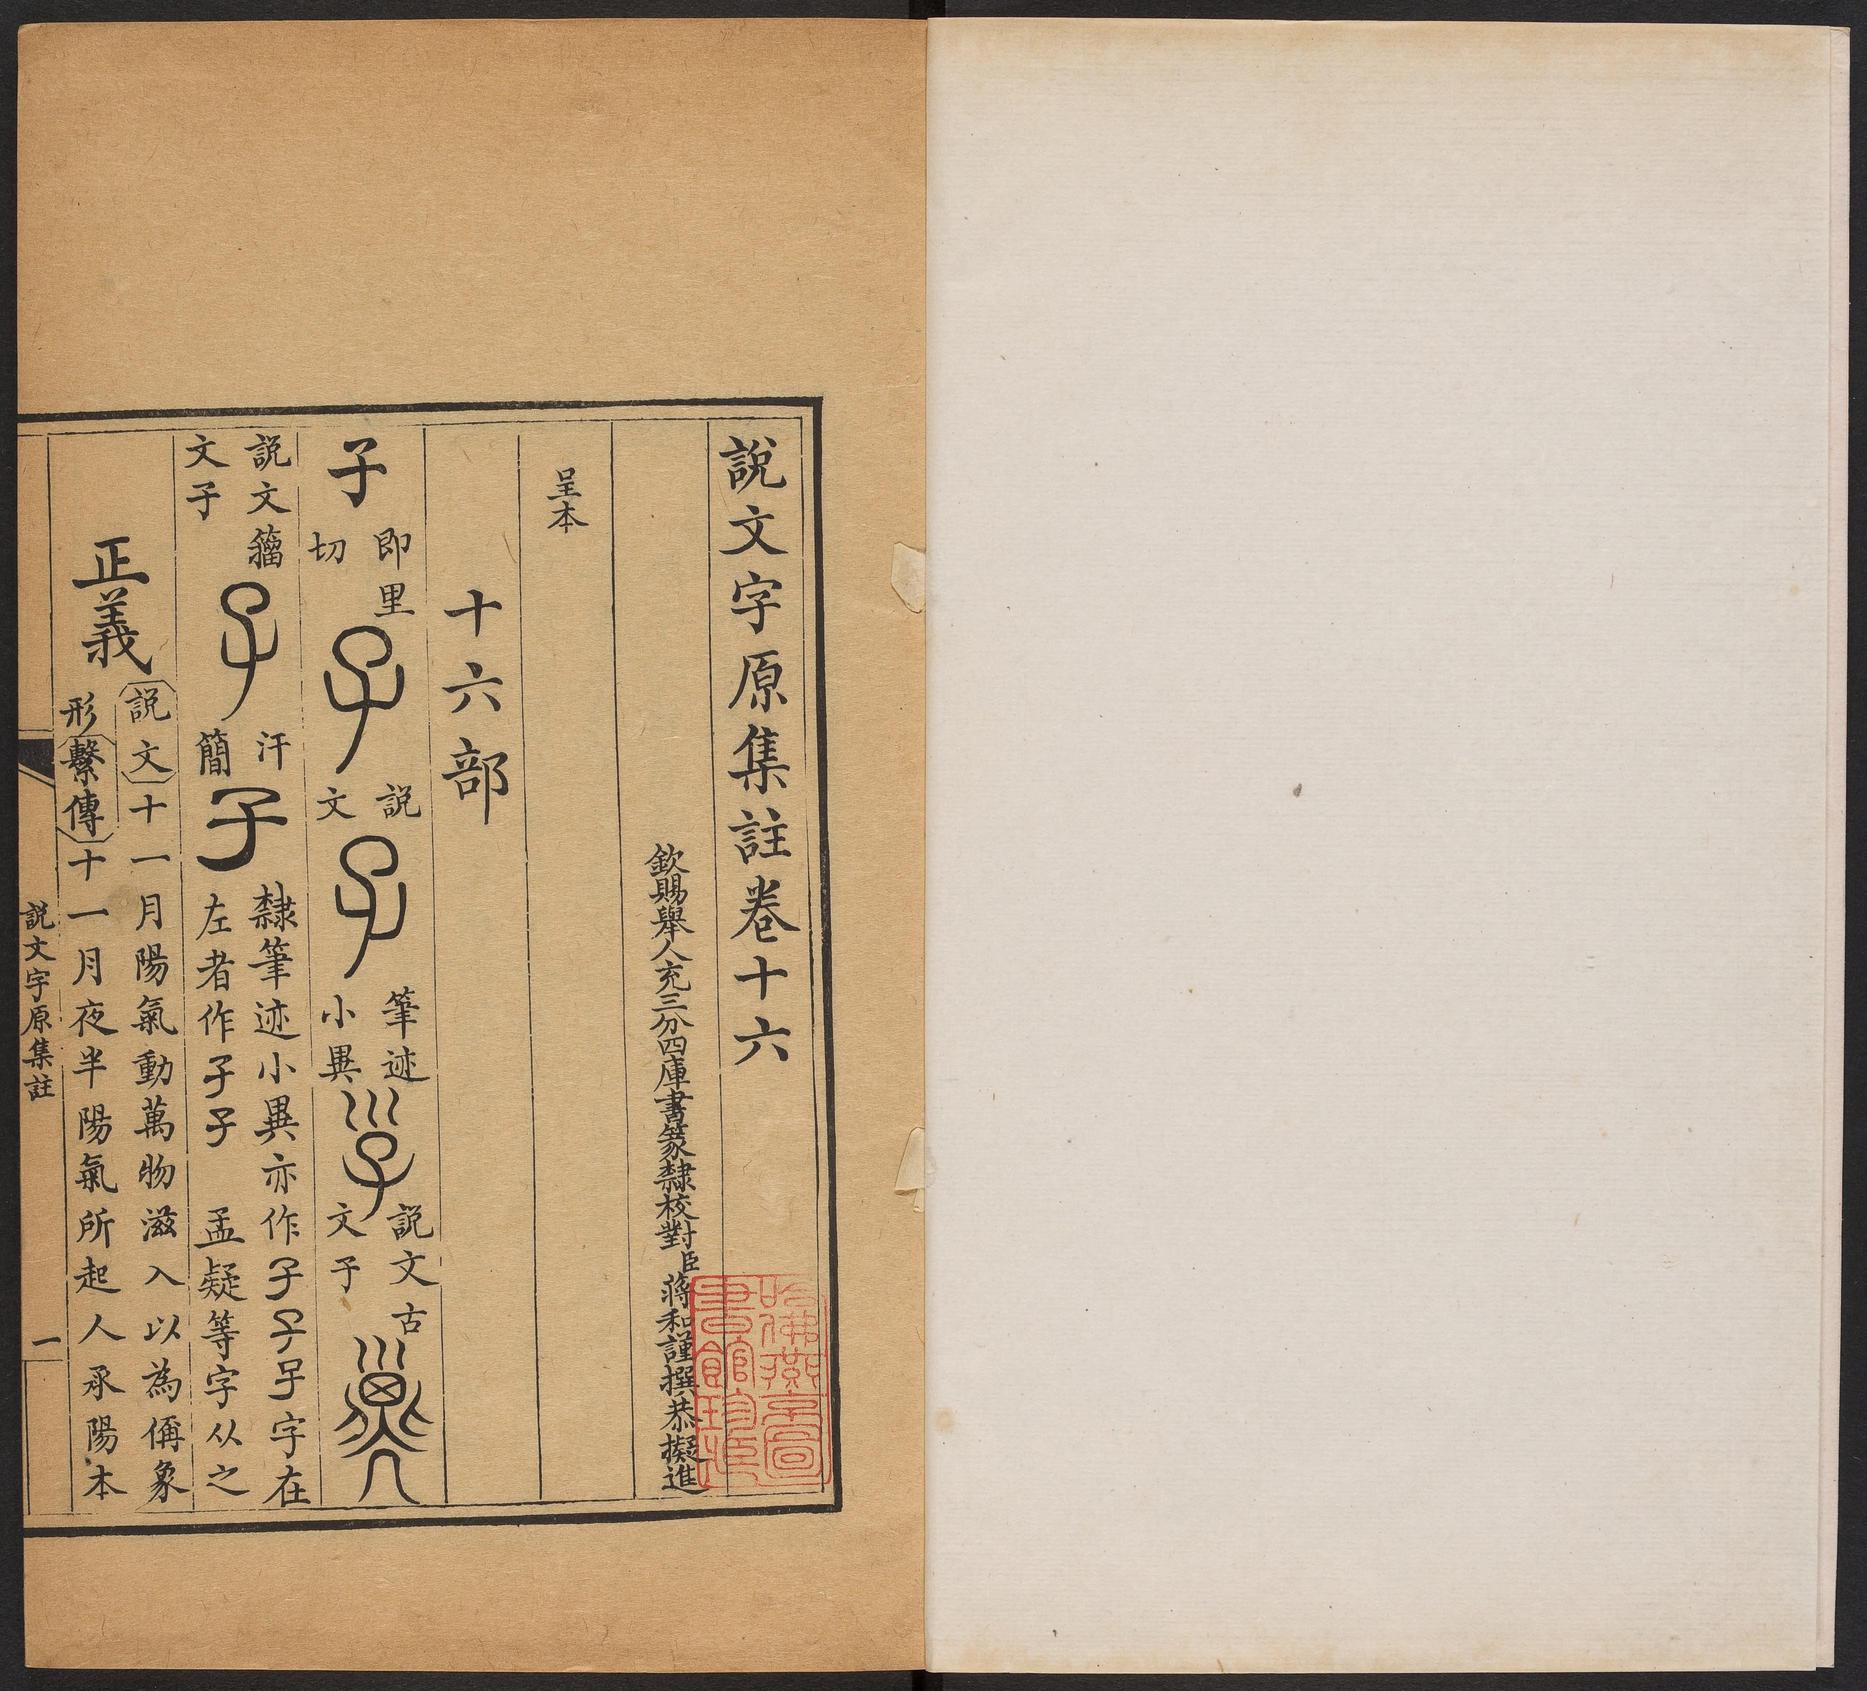 說文字原集註卷十六
欽賜舉人充三分四庫書篆隸校對臣蔣和謹撰恭擬進
呈本
十六部
子 即里切 子 說文 子 筆迹小異 㜽 說文古文子
說文籀文子 子 汗簡 子 隸筆迹小異亦作子子㝊字在左者作子子 孟疑等字从之
正義 說文 十一月陽氣動萬物滋入以為偁象
形 繫傳 十一月夜半陽氣所起人承陽本
說文字原集註
一
哈佛燕京圖書館珍藏